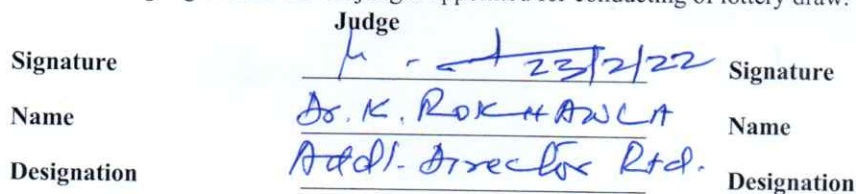 appointed for conducting of lottery draw.
Judge
Signature 23/2/22 Signature
Name Dr. K. ROKHAWLA Name
Designation Addl. Director Rtd. Designation